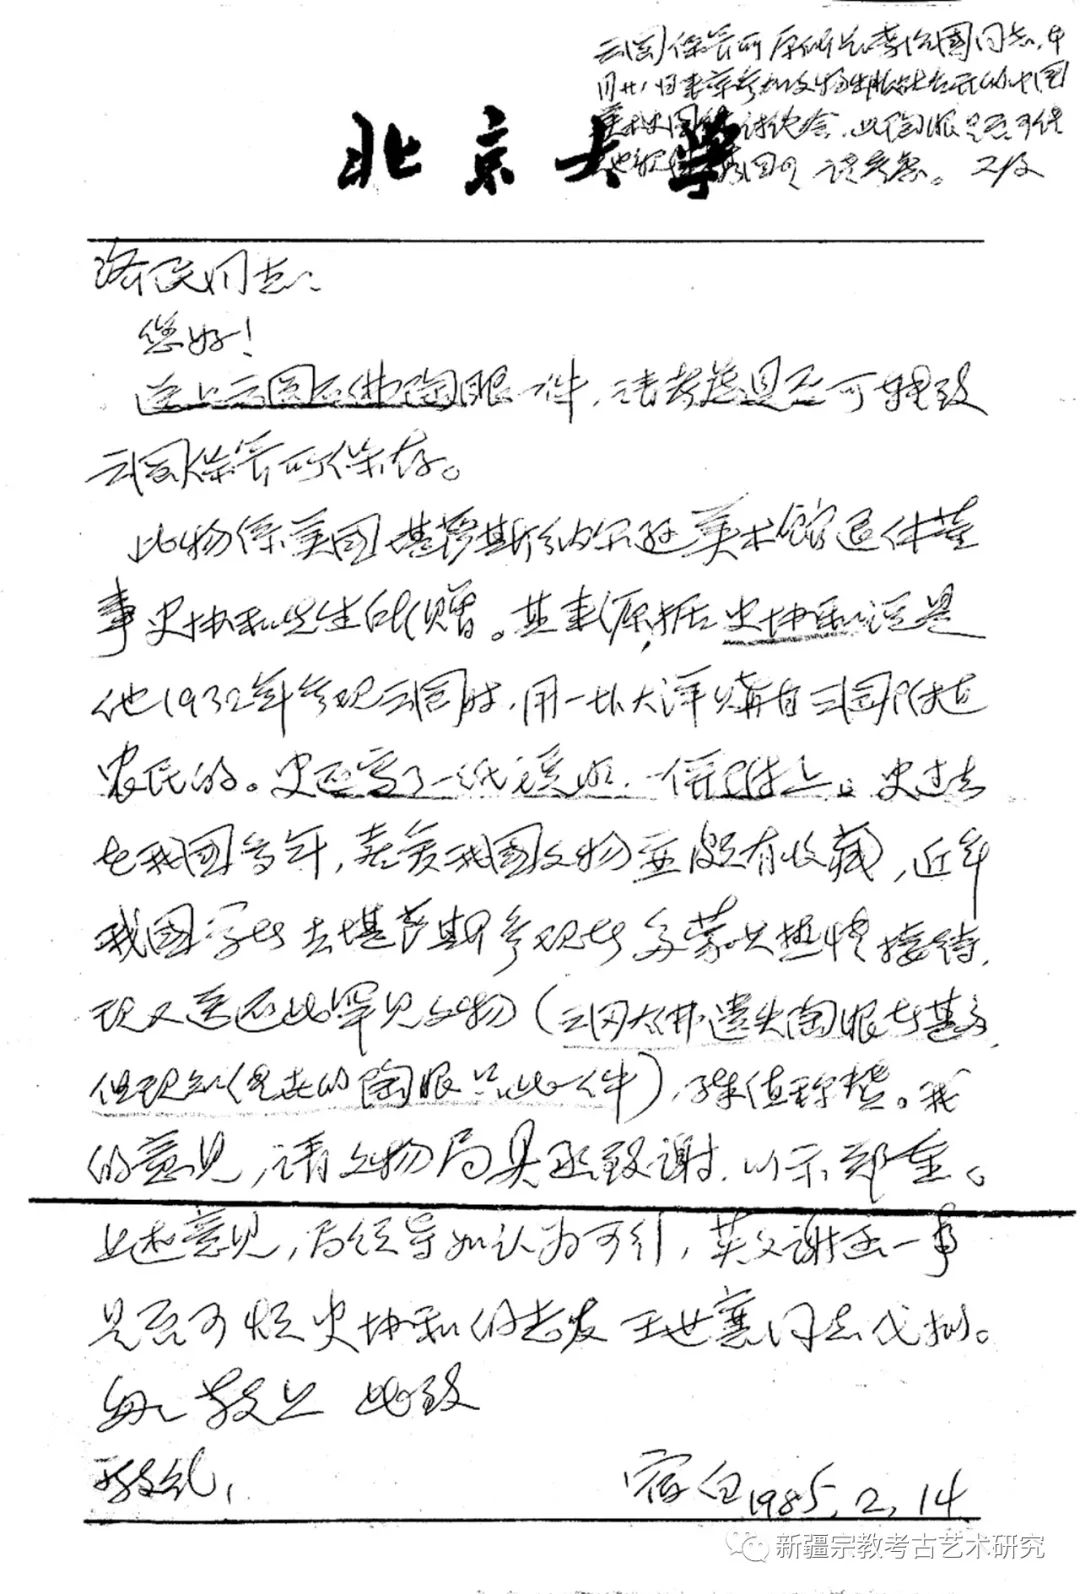 云冈保管所原所长李治国同志,本
月廿八日来京参加文物出版社召开的中国
石窟 讨论会,此陶眼是否可请
他 带回?请考虑。又及
北京大学
济民同志:
您好!
送上云冈石佛陶眼一件,请考虑是否可转致
云冈保管所保存。
此物系美国堪萨斯纳尔逊美术馆退休董
事史协和先生所赠。其来源,据史协和说是
他1932年参观云冈时,用一块大洋购自云冈附近
农民的。史还写了一纸说明,一併附上。史过去
在我國多年,喜爱我國文物並頗有收藏,近年
我國学者去堪萨斯参观者多蒙其热情接待,
现又送还此罕见文物(云冈大佛遗失陶眼者甚多,
但现知仅存的陶眼只此一件),殊值称赞。我
的意见,请文物局具函致谢,以示郑重。
上述意见,局领导如认为可行,英文谢函一事
是否可烦史协和的老友王世襄同志代拟。
匆匆敬上 此致
敬礼!
宿白 1985.2.14
新疆宗教考古艺术研究